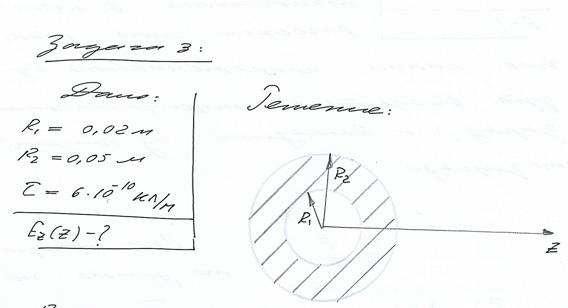 Задача 3:
Дано:
R₁ = 0,02 м
R₂ = 0,05 м
τ = 6·10⁻¹⁰ Кл/м
E_z(z) - ?
Решение:
R₂
R₁
z